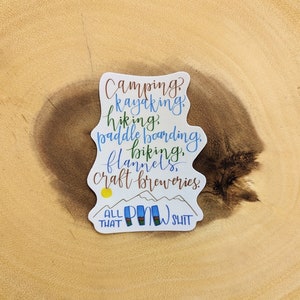 camping,
kayaking,
hiking,
paddle boarding,
biking,
flannels,
craft breweries.
ALL THAT PNW SHIT